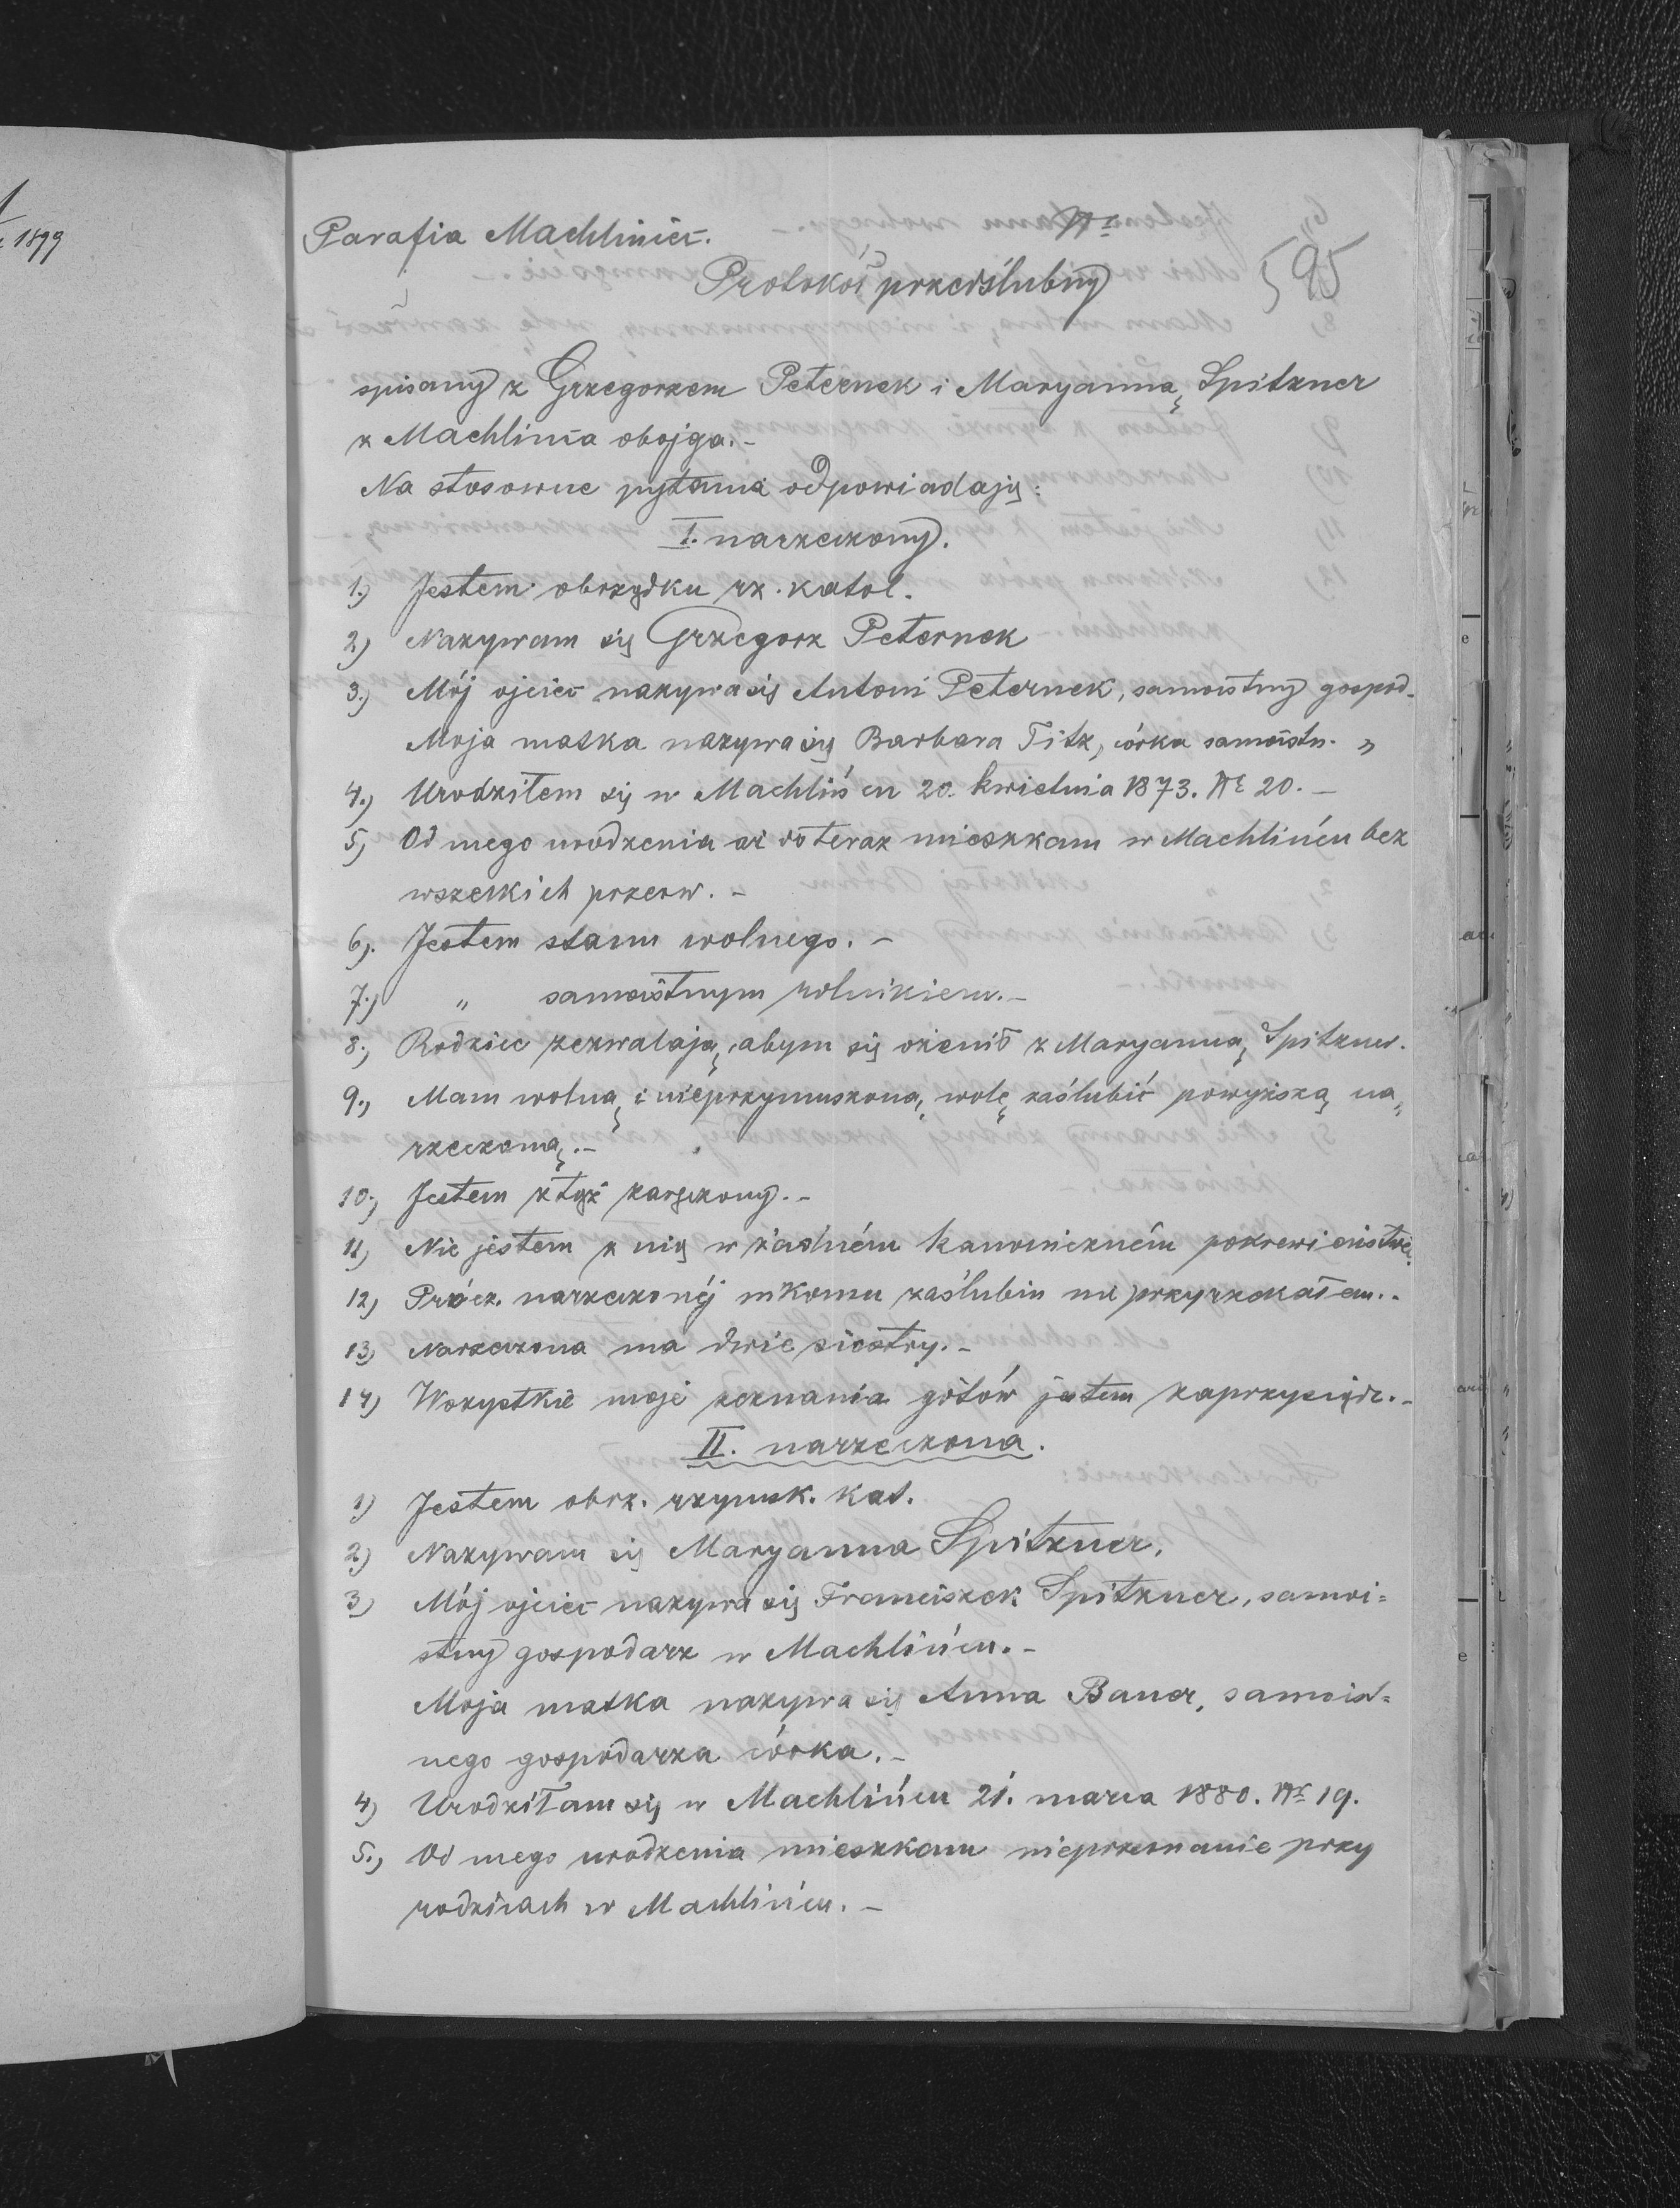 1899
Parafia Machliniec.
Nr
595
Protokół przedślubny
spisany z Grzegorzem Peternek i Maryanną Spitzner
z Machlińca obojga.-
Na stosowne pytania odpowiadają:
I. narzeczony.
1.) Jestem obrządku rz. katol.
2) Nazywam się Grzegorz Peternek
3.) Mój ojciec nazywa się Antoni Peternek, samoistny gospod.
Moja matka nazywa się Barbara Titz, córka samoistn. "
4.) Urodziłem się w Machlińcu 20. kwietnia 1873. Nr 20.-
5) Od mego urodzenia aż do teraz mieszkam w Machlińcu bez
wszelkich przerw.-
6). Jestem stanu wolnego.-
7.) " samoistnym rolnikiem.-
8.) Rodzice zezwalają, abym się ożenił z Maryanną Spitzner.
9.) Mam wolną i nieprzymuszoną wolę zaślubić powyższą na=
rzeczoną.-
10.) Jestem z tąż zaręczony.-
11) Nie jestem z nią w żadném kanoniczném pokrewieństwie.
12) Prócz narzeczonéj nikomu zaślubin nie przyrzekałem.-
13) Narzeczona ma dwie siostry.-
14) Wszystkie moje zeznania gotów jestem zaprzysiądz.-
II. narzeczona.
1) Jestem obrz. rzymsk. kat.
2) Nazywam się Maryanna Spitzner.
3) Mój ojciec nazywa się Franciszek Spitzner, samoi=
stny gospodarz w Machlińcu.-
Moja matka nazywa się Anna Bauer, samoist=
nego gospodarza córka.-
4) Urodziłam się w Machlińcu 21. marca 1880. Nr 19.
5.) Od mego urodzenia mieszkam nieprzerwanie przy
rodzicach w Machlińcu.-